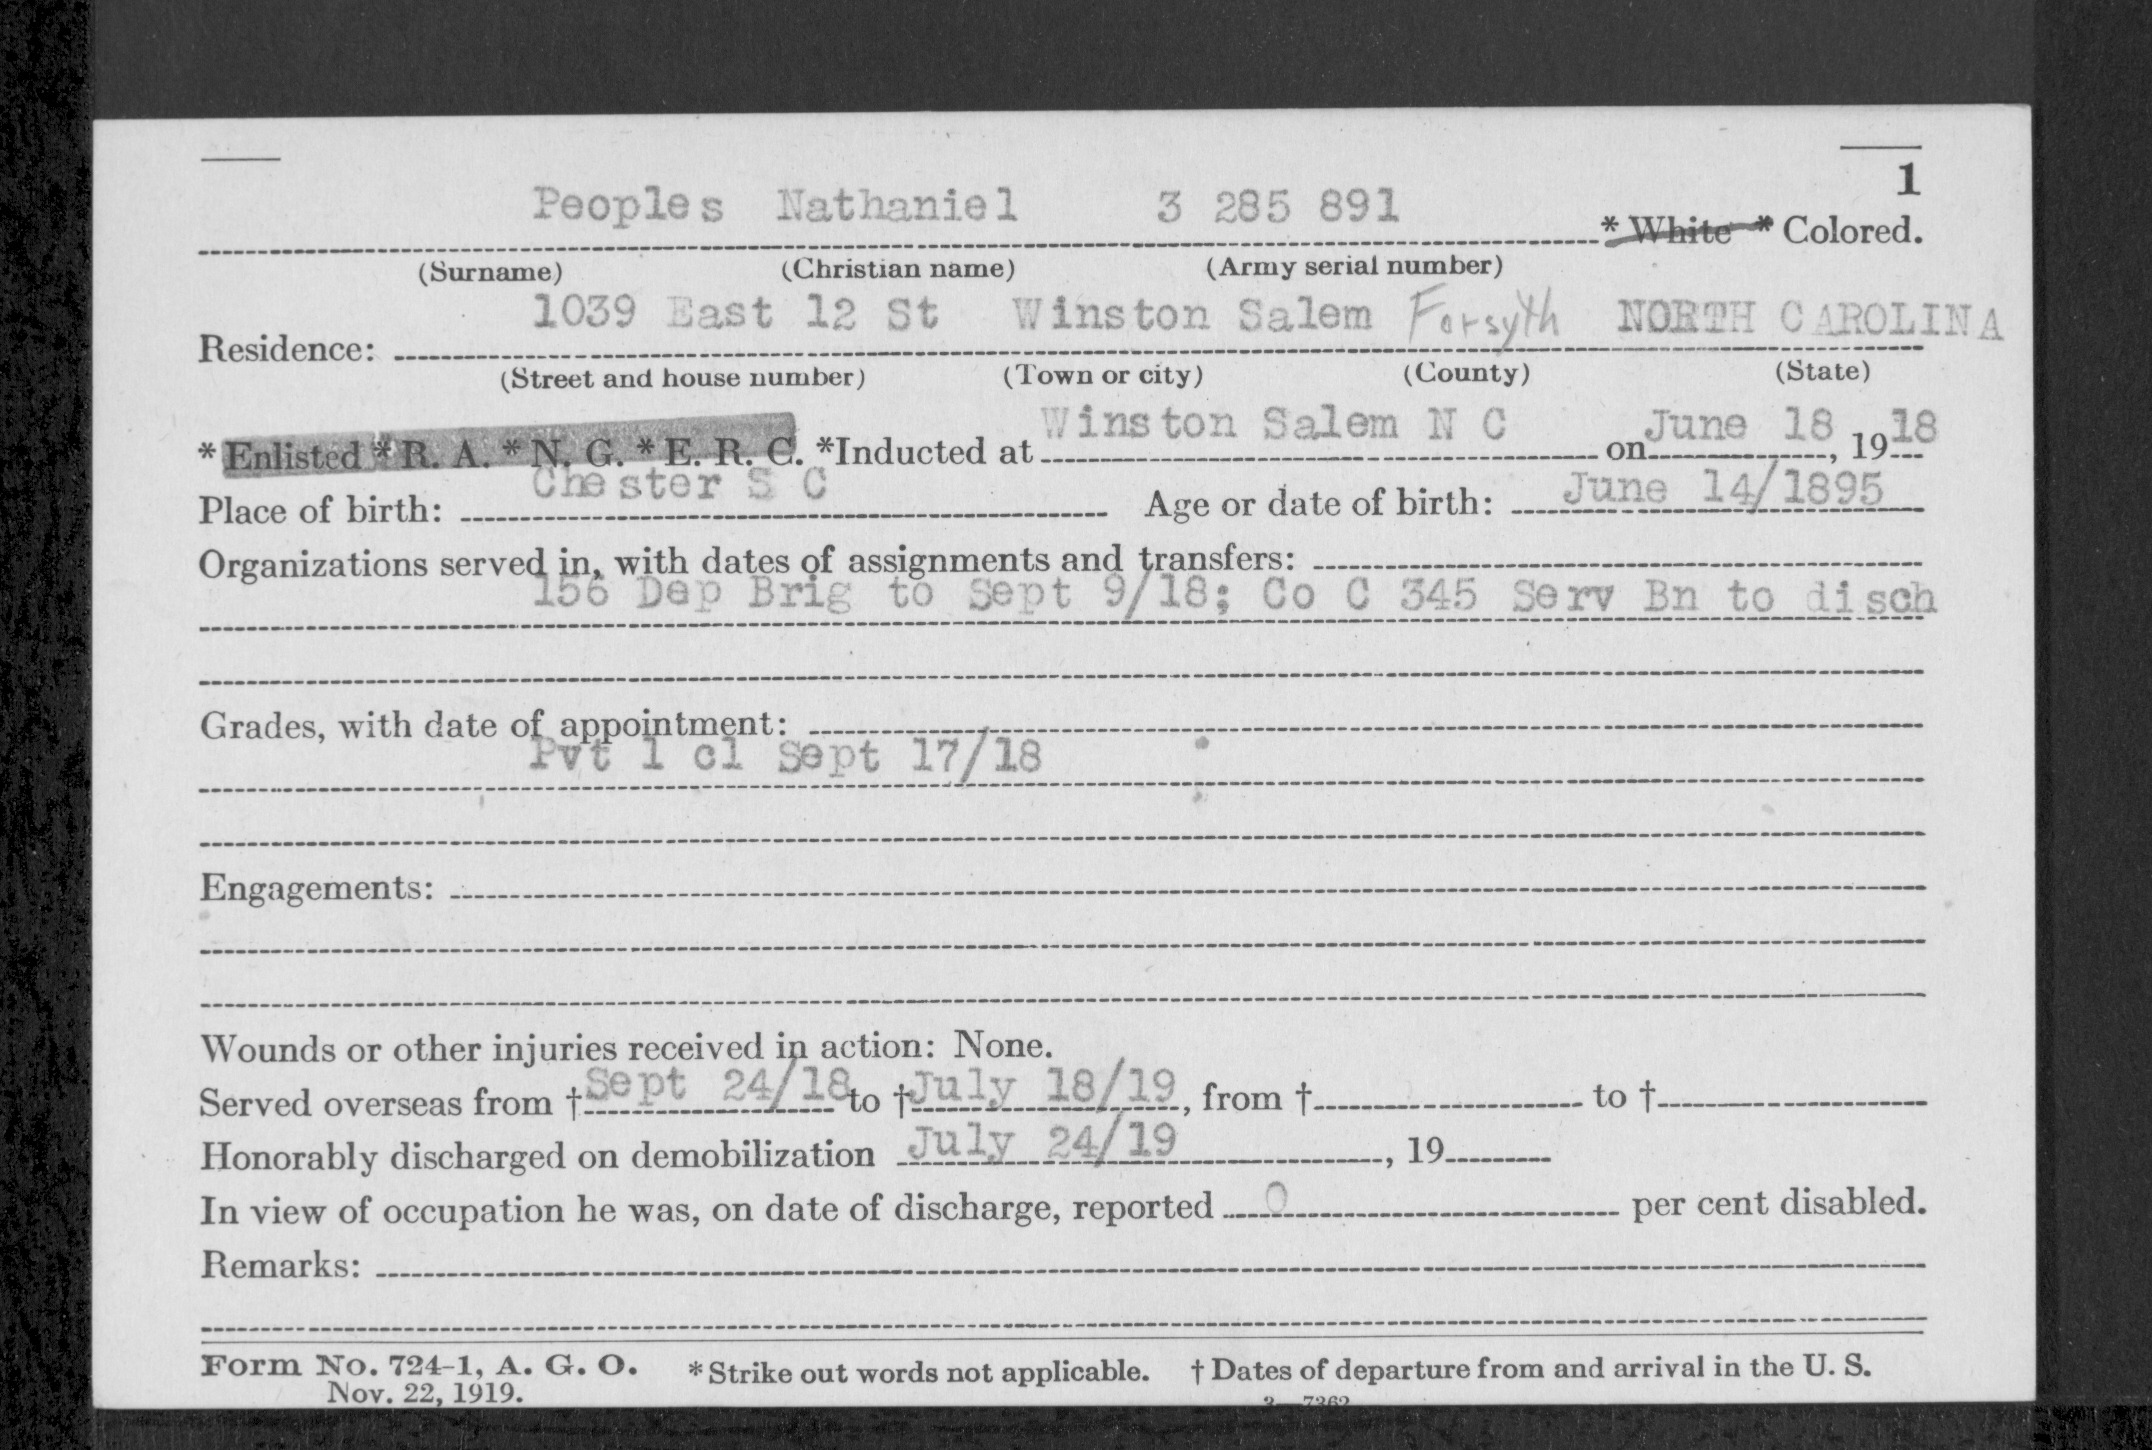 1
Peoples Nathaniel 3 285 891 * White * Colored.
(Surname) (Christian name) (Army serial number)
1039 East 12 St Winston Salem Forsyth NORTH CAROLINA
Residence:
(Street and house number) (Town or city) (County) (State)
* Enlisted * R. A. * N. G. * E. R. C. *Inducted at Winston Salem N C on June 18, 1918
Place of birth: Chester S C Age or date of birth: June 14/1895
Organizations served in, with dates of assignments and transfers:
156 Dep Brig to Sept 9/18; Co C 345 Serv Bn to disch
Grades, with date of appointment:
Pvt 1 cl Sept 17/18
Engagements:
Wounds or other injuries received in action: None.
Served overseas from † Sept 24/18 to † July 18/19, from † to †
Honorably discharged on demobilization July 24/19, 19
In view of occupation he was, on date of discharge, reported 0 per cent disabled.
Remarks:
Form No. 724-1, A. G. O. * Strike out words not applicable. † Dates of departure from and arrival in the U. S.
Nov. 22, 1919. 3—7362